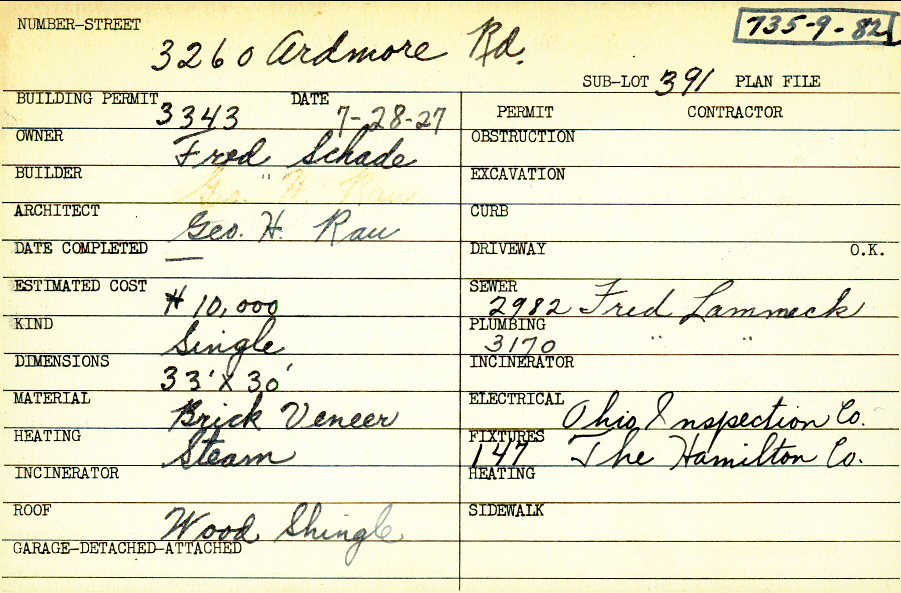 NUMBER-STREET
735-9-82
3260 Ardmore Rd.
SUB-LOT 391 PLAN FILE
BUILDING PERMIT 3343 DATE 7-28-27
OWNER Fred Schade
BUILDER " 
ARCHITECT Geo. H. Rau
DATE COMPLETED —
ESTIMATED COST $10,000
KIND Single
DIMENSIONS 33' X 30'
MATERIAL Brick Veneer
HEATING Steam
INCINERATOR
ROOF Wood Shingle
GARAGE-DETACHED-ATTACHED
PERMIT CONTRACTOR
OBSTRUCTION
EXCAVATION
CURB
DRIVEWAY O.K.
SEWER 2982 Fred Lammeck
PLUMBING 3170 " "
INCINERATOR
ELECTRICAL Ohio Inspection Co.
FIXTURES 147 The Hamilton Co.
HEATING
SIDEWALK